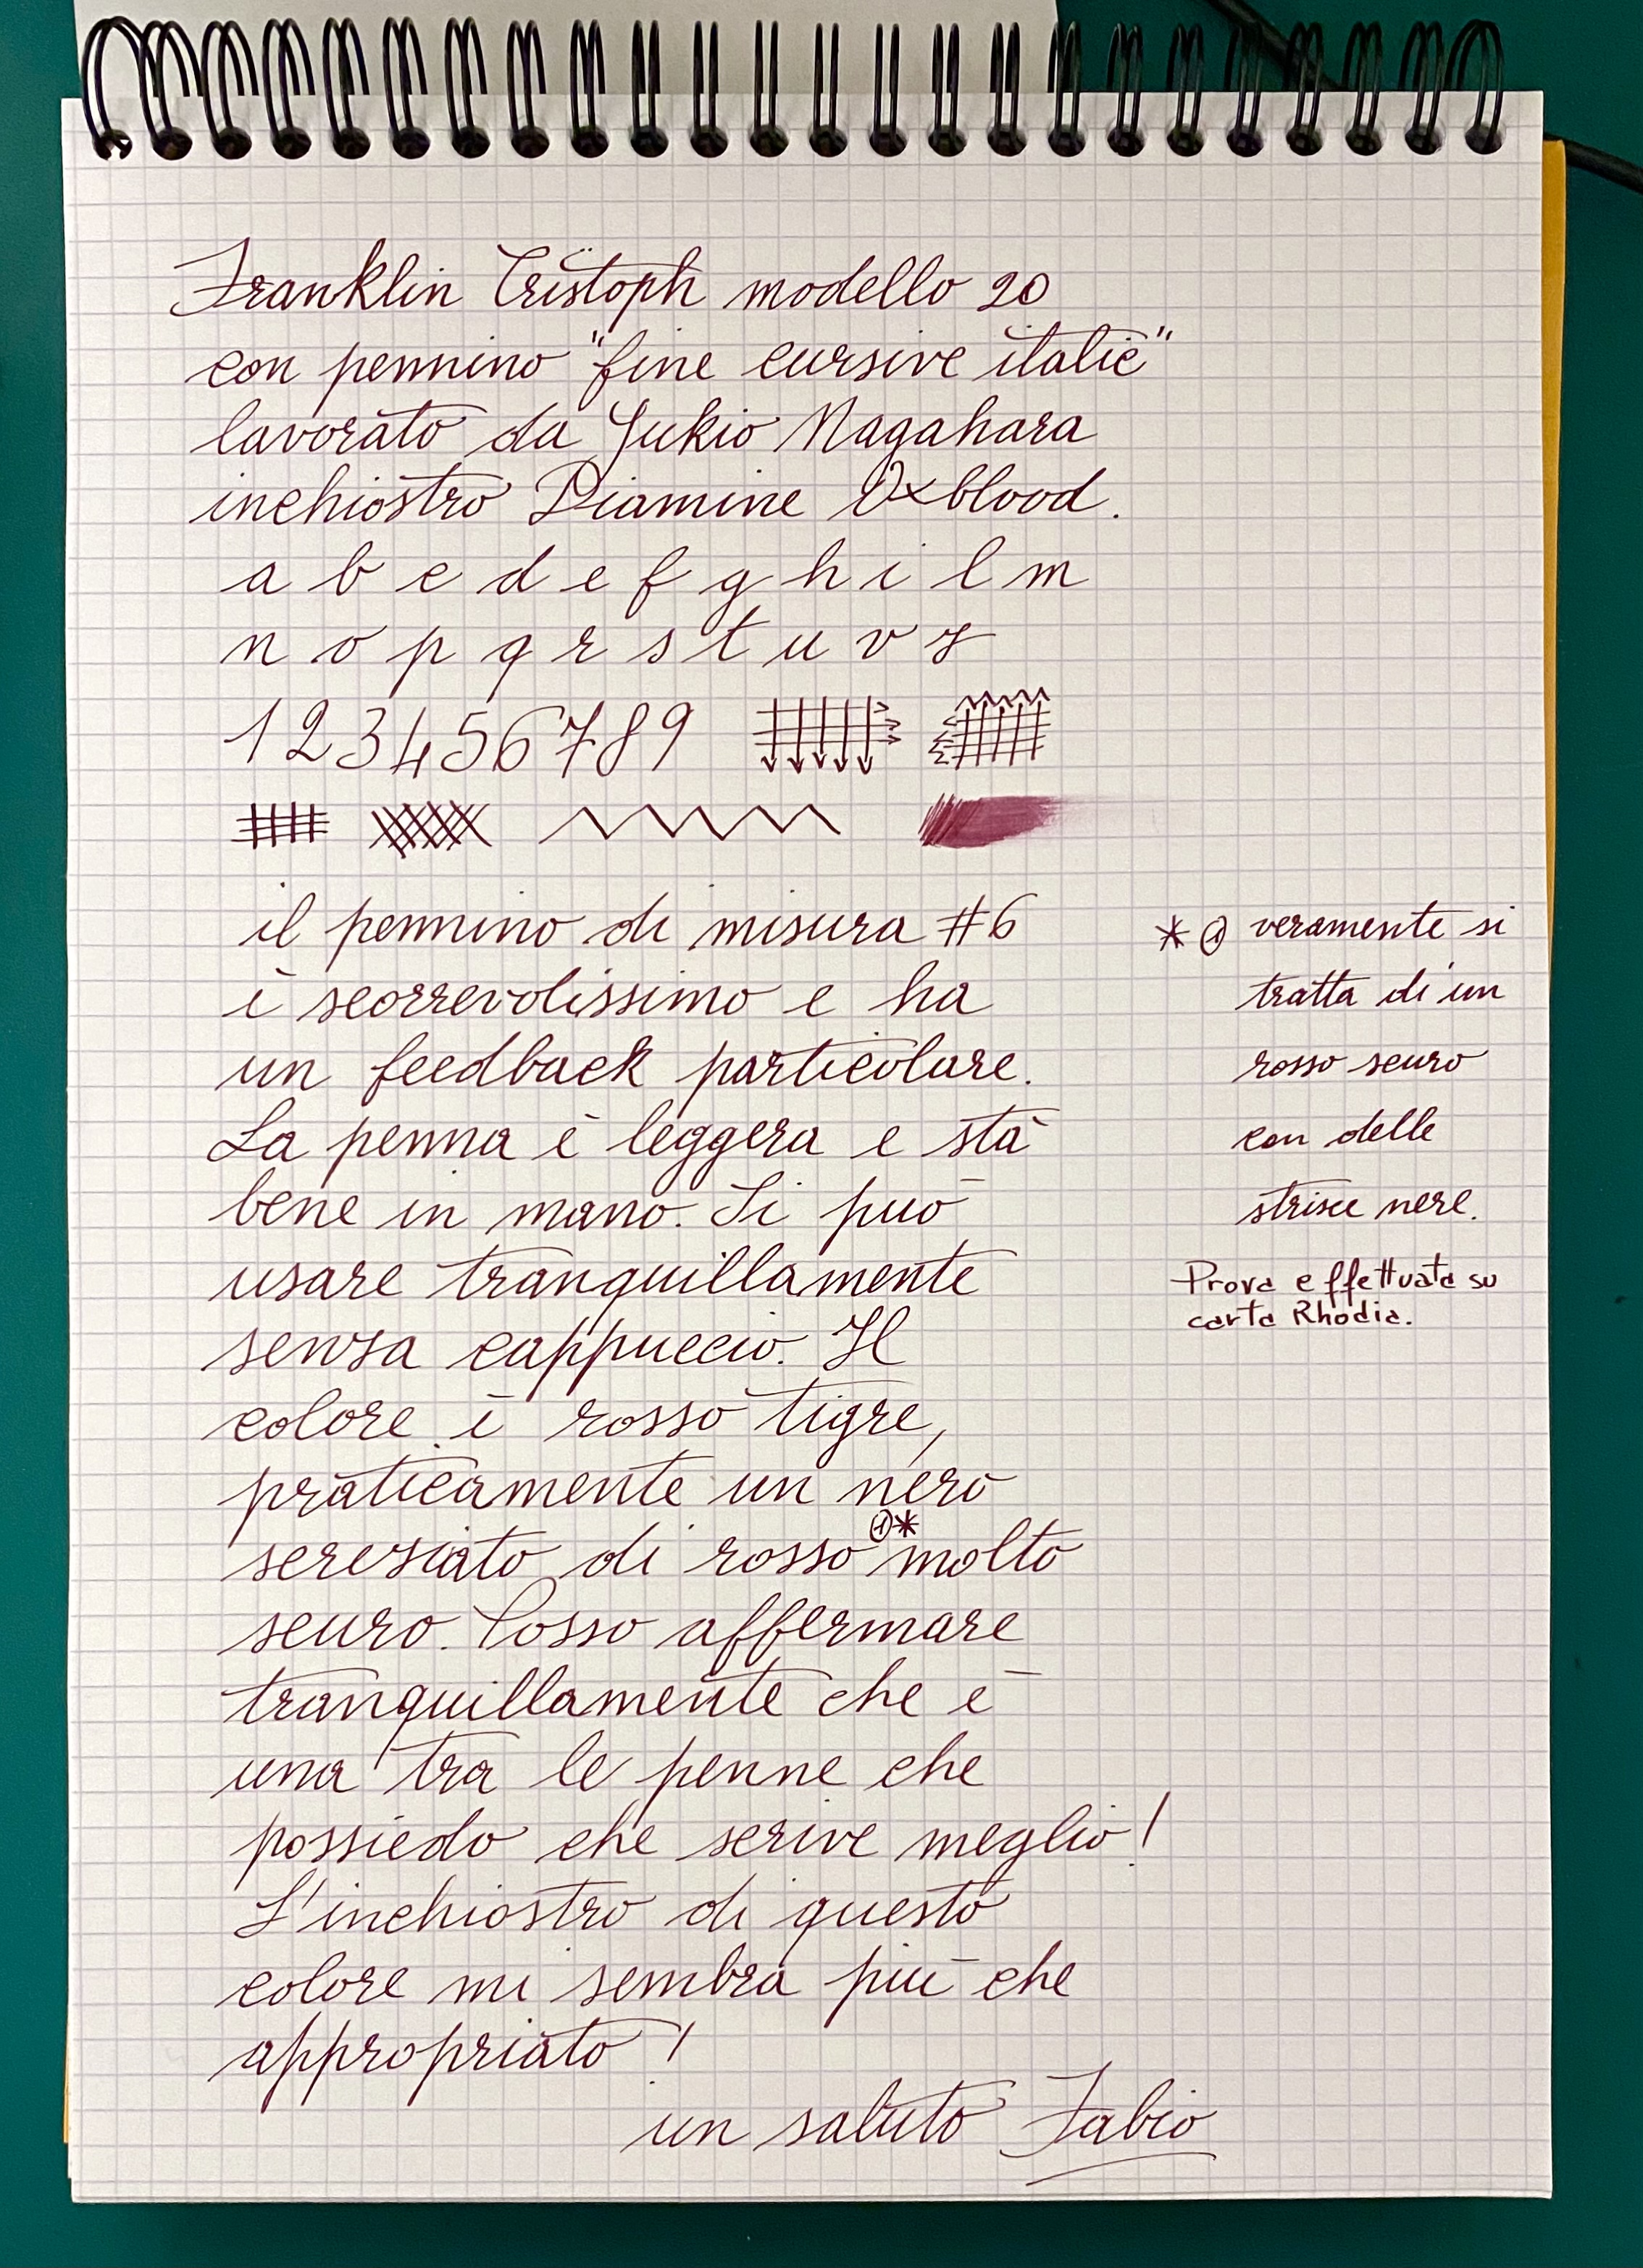 Franklin Cristoph modello 20
con pennino "fine cursive italic"
lavorato da Yukio Nagahara
inchiostro Diamine Oxblood.
a b c d e f g h i l m
n o p q r s t u v z
1 2 3 4 5 6 7 8 9
il pennino di misura #6
è scorrevolissimo e ha
un feedback particolare.
La penna è leggera e stà
bene in mano. Si può
usare tranquillamente
senza cappuccio. Il
colore è rosso tigre,
praticamente un nero
screziato di rosso ①* molto
scuro. Posso affermare
tranquillamente che è
una tra le penne che
possiedo che scrive meglio!
L'inchiostro di questo
colore mi sembra più che
appropriato!
un saluto Fabio
* ① veramente si
tratta di un
rosso scuro
con delle
strisce nere.
Prova effettuata su
carta Rhodia.